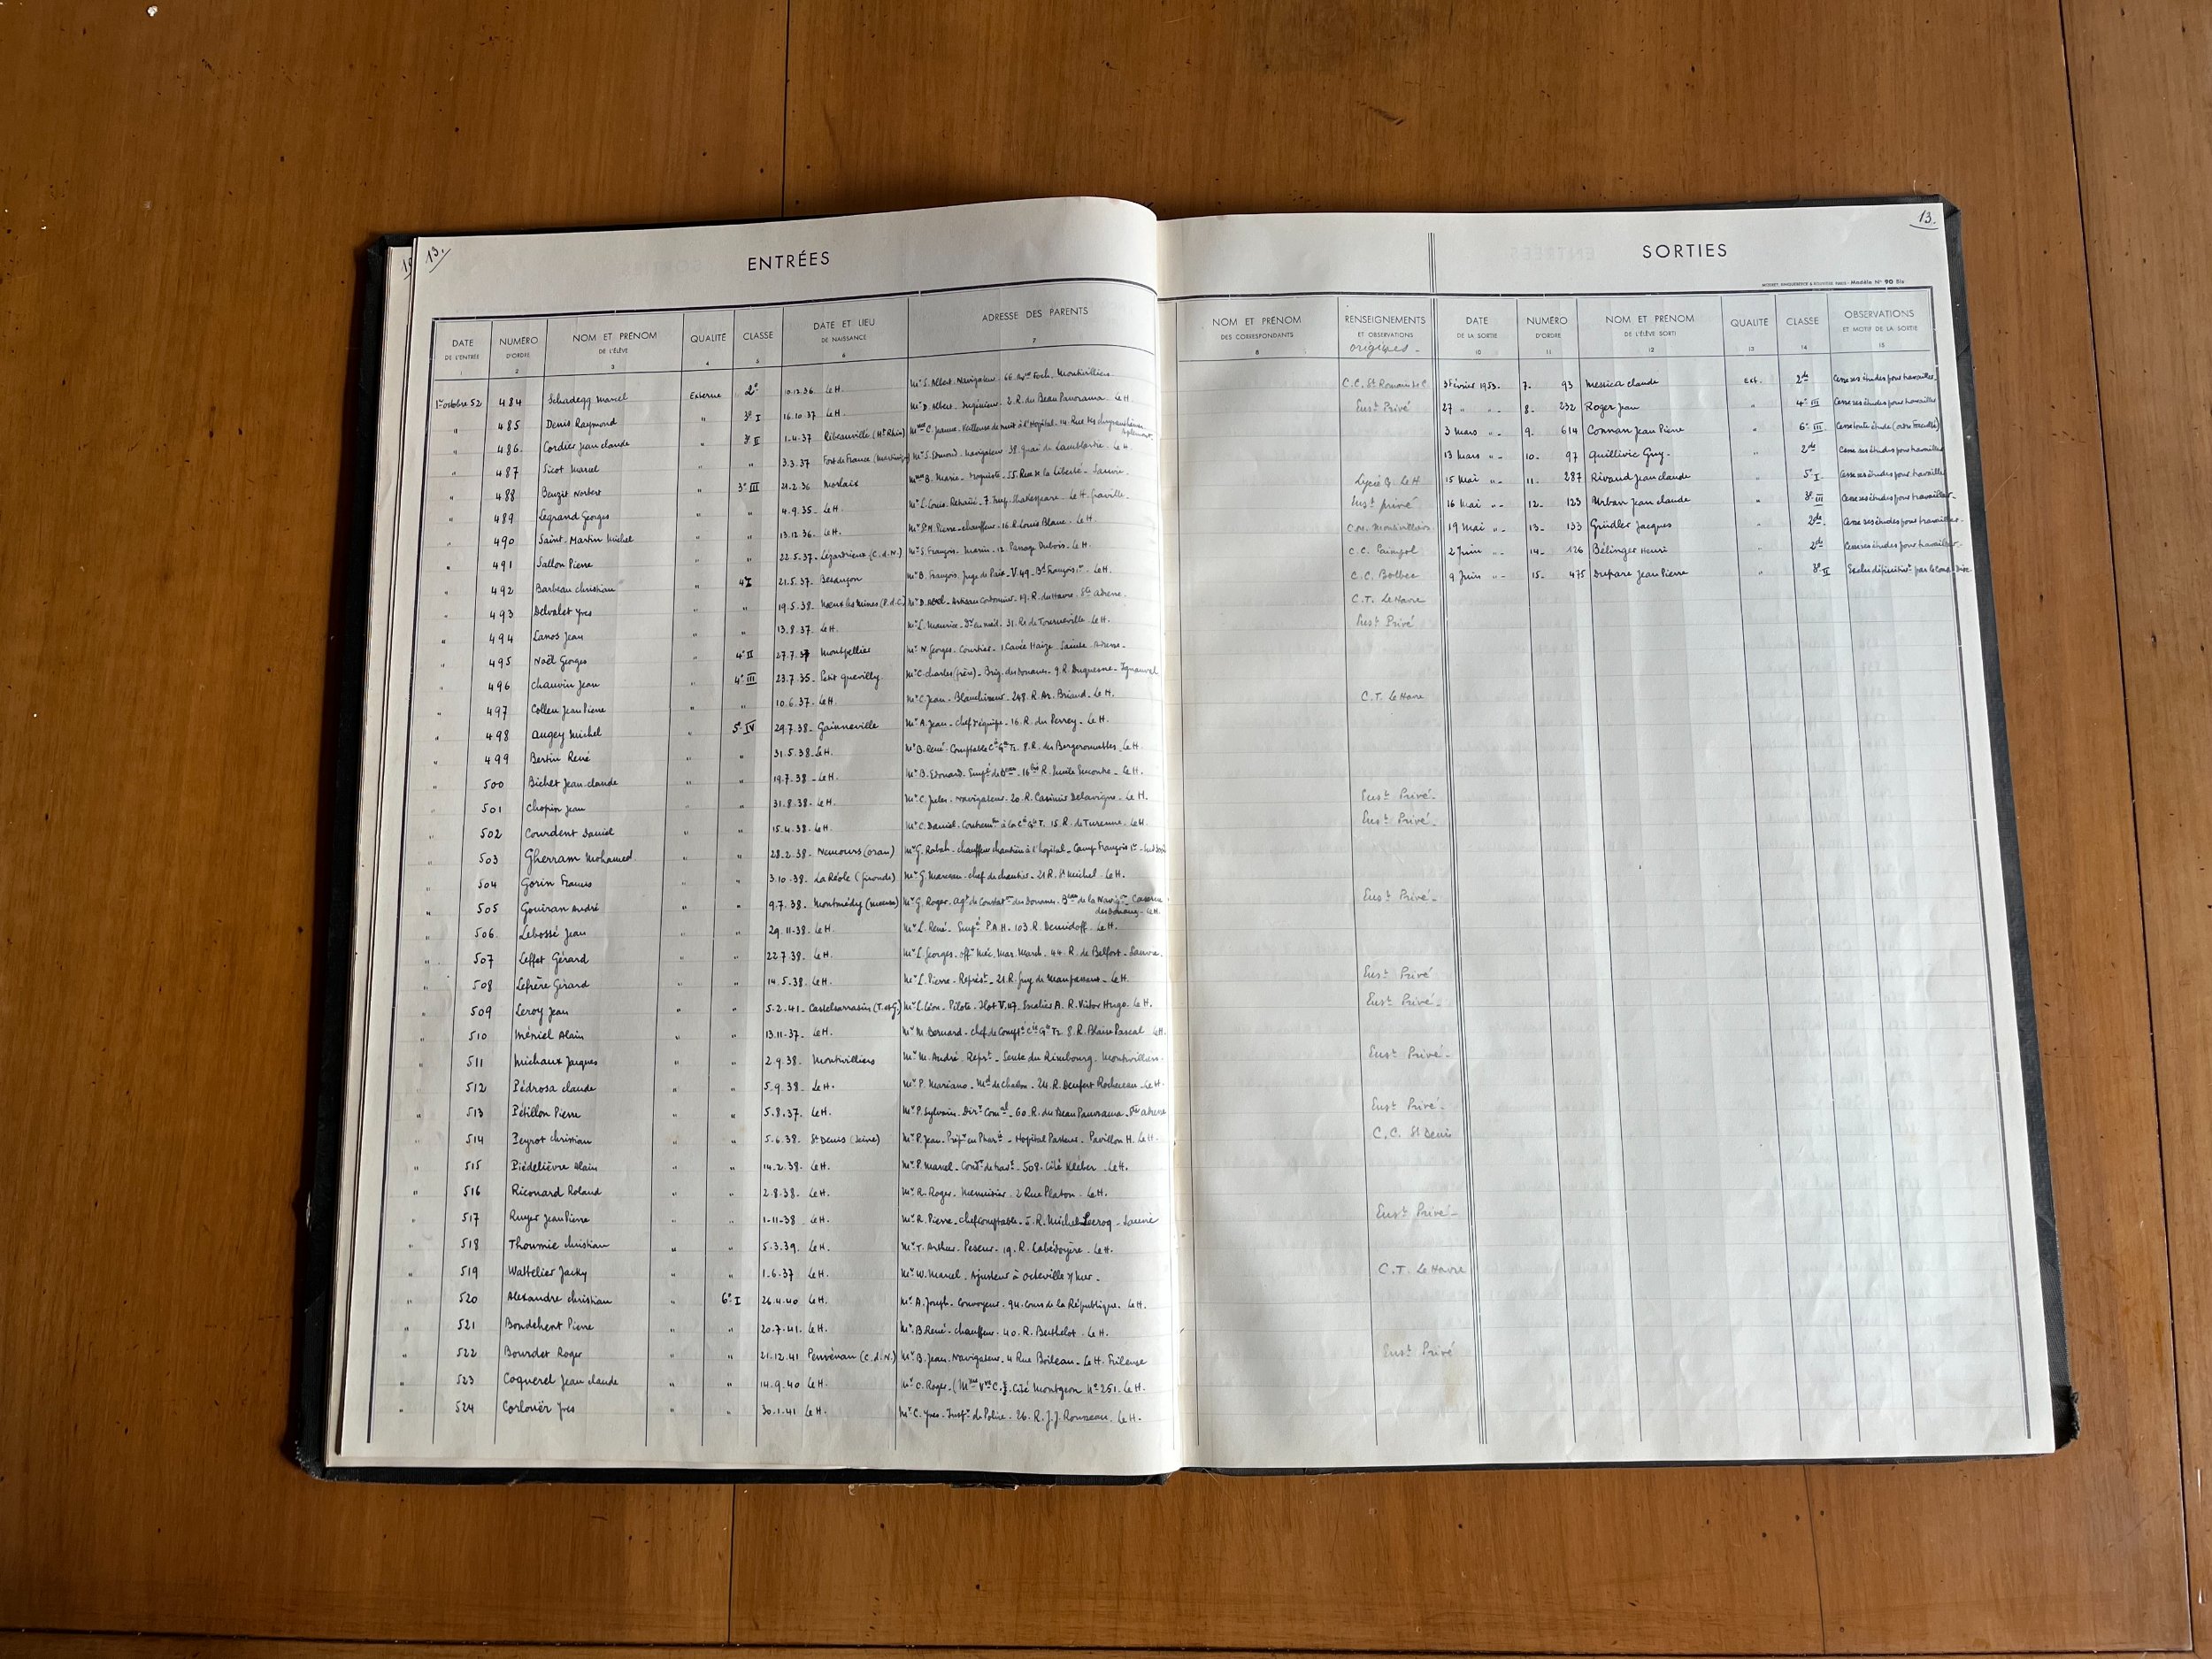 13.
ENTRÉES
DATE DE L'ENTRÉE 1 NUMÉRO D'ORDRE 2 NOM ET PRÉNOM DE L'ÉLÈVE 3 QUALITÉ 4 CLASSE 5 DATE ET LIEU DE NAISSANCE 6 ADRESSE DES PARENTS 7
1er octobre 52 484 Schadegg Marcel Externe 2e 10.12.36 Le H. Mr S. Albert. Navigateur. 66 Foch. Montivilliers
" 485 Denis Raymond " 3e I 16.10.37 Le H. Mr D. Albert. Ingénieur. 2. R. du Beau Panorama. Le H.
" 486 Cordier Jean claude " 3e II 1.4.37 Ribeauville (Ht Rhin) Mme C. Jeanne. Veilleuse de nuit à l'Hôpital. 14. Rue
" 487 Sicot Marcel " " 3.3.37 Fort de France (Martinique) Mr S. Edmond. Navigateur 38. quai de Lamblardie. Le H.
" 488 Benzit Norbert " 3e III 21.2.36 Morlaix Mme B. Marie. 55. Rue de la Liberté. Sanvic.
" 489 Legrand Georges " " 4.9.35. Le H. Mr L. Louis. Retraité. 7. Imp. Shakespeare. Le H. Graville.
" 490 Saint. Martin Michel " " 13.12.36. Le H. Mr St M. Pierre. chauffeur. 16. R. Louis Blanc. Le H.
" 491 Sallou Pierre " " 22.5.37. Lézardrieux (C.d.N.) Mr S. François. Marin. 12. Passage Dubois. Le H.
" 492 Barbeau christian " 4e I 21.5.37. Besançon Mr B. François. Juge de Paix. V.49. Bd François 1er. Le H.
" 493 Delvalet Yves " " 19.5.38. Nœux les Mines (P.d.C.) Mr D. Abel. Artisan Cordonnier. 19. R. du Havre. Ste Adresse.
" 494 Lanos Jean " " 13.8.37. Le H. Mr L. Maurice. Dr en méd. 31. R. de Tourneville. Le H.
" 495 Noël Georges " 4e II 27.7.37 Montpellier Mr N. Georges. Courtier. 1. Cavée Haize. Sainte Adresse.
" 496 Chauvin Jean " 4e III 23.7.35. Petit Quevilly. Mr C. charles (frère). Brig. des Douanes. 9. R. Duquesne. Ignauval
" 497 Colleu Jean Pierre " " 10.6.37. Le H. Mr C. Jean. Blanchisseur. 248. R. Ar. Briand. Le H.
" 498 Augey Michel " 5e IV 29.7.38. Gainneville Mr A. Jean. chef d'équipe. 16. R. du Perrey. Le H.
" 499 Bertin René " " 31.5.38. Le H. Mr B. René. Comptable Cie Gle Tr. 8. R. des Bergeronnettes. Le H.
" 500 Bichet Jean claude " " 19.7.38. Le H. Mr B. Edouard. Empé de 16 bis R. Le H.
" 501 Chopin Jean " " 31.8.38. Le H. Mr C. Jules. Navigateur. 20. R. Casimir Delavigne. Le H.
" 502 Courdent Daniel " " 15.4.38. Le H. Mr C. Daniel. Contremtre à la Cie Gle T. 15. R. de Turenne. Le H.
" 503 Gherram Mohamed. " " 28.2.38. Nemours (Oran) Mr G. Rabah. chauffeur chaudière à l'hôpital. Camp François 1er.
" 504 Gorin Francis " " 3.10.38. La Réole (Gironde) Mr G. Marceau. chef de chantier. 21 R. St Michel. Le H.
" 505 Gouiran André " " 9.7.38. Montmédy (Meuse) Mr G. Roger. Agt de Constaton des Douanes. de la Navigon. Caserne des Douanes. Le H.
" 506 Lebossé Jean " " 29.11.38. Le H. Mr L. René. Empé P.A.H. 103. R. Demidoff. Le H.
" 507 Leffet Gérard " " 22.7.38. Le H. Mr L. Georges. offr Méc. Mar. March. 44. R. de Belfort. Sanvic.
" 508 Lefrère Gérard " " 14.5.38. Le H. Mr L. Pierre. Représt. 21. R. Guy de Maupassant. Le H.
" 509 Leroy Jean " " 5.2.41. Castelsarrasin (T. et G.) Mr L. Léon. Pilote. Ilot V.47. Escalier A. R. Victor Hugo. Le H.
" 510 Mériel Alain " " 13.11.37. Le H. Mr M. Bernard. chef de Compté Cie Gle Tr. 8. R. Blaise Pascal Le H.
" 511 Michaux Jacques " " 2.9.38. Montivilliers Mr M. André. Représt. Sente du Rimbourg. Montivilliers.
" 512 Pédrosa claude " " 5.9.38. Le H. Mr P. Mariano. Md de Chalon. 24. R. Denfert Rochereau. Le H.
" 513 Pétillon Pierre " " 5.8.37. Le H. Mr P. Sylvain. Dirr Comal. 60. R. du Beau Panorama. Ste Adresse
" 514 Peyrot christian " " 5.6.38. St Denis (Seine) Mr P. Jean. Prépr en Phare. Hôpital Pasteur. Pavillon H. Le H.
" 515 Piédelièvre Alain " " 14.2.38. Le H. Mr P. Marcel. Condr de travx. 508. Cité Kléber. Le H.
" 516 Riconard Roland " " 2.8.38. Le H. Mr R. Roger. Menuisier. 2 Rue Platon. Le H.
" 517 Ruyer Jean Pierre " " 1.11.38 Le H. Mr R. Pierre. chef comptable. 5. R. Michel Lecroq. Sanvic
" 518 Thoumie christian " " 5.3.39. Le H. Mr T. Arthur. Peseur. 19. R. Labédoyère. Le H.
" 519 Wattelier Jacky " " 1.6.37 Le H. Mr W. Marcel. Ajusteur à Octeville s/ Mer.
" 520 Alexandre christian " 6e I 26.4.40 Le H. Mr A. Joseph. Convoyeur. 94. Cours de la République. Le H.
" 521 Bondehent Pierre " " 20.7.41. Le H. Mr B. René. chauffeur. 40. R. Berthelot. Le H.
" 522 Bourdet Roger " " 21.12.41 Penvénan (C.d.N.) Mr B. Jean. Navigateur. 4 Rue Boileau. Le H. Frileuse
" 523 Coquerel Jean claude " " 14.9.40 Le H. Mr C. Roger. (Mme Vve C.). Cité Montgeon No 251. Le H.
" 524 Corlouër Yves " " 30.1.41 Le H. Mr C. Yves. Inspr de Police. 26. R. J.J. Rousseau. Le H.
13.
SORTIES
Modèle No 90 Bis
NOM ET PRÉNOM DES CORRESPONDANTS 8 RENSEIGNEMENTS ET OBSERVATIONS origines 9 DATE DE LA SORTIE 10 NUMÉRO D'ORDRE 11 NOM ET PRÉNOM DE L'ÉLÈVE SORTI 12 QUALITÉ 13 CLASSE 14 OBSERVATIONS ET MOTIF DE LA SORTIE 15
C.C. St Romain de C 3 Février 1953. 7. 93 Messica claude Ext. 2de Cesse ses études pour travailler.
Enst Privé 27 " " 8. 232 Roger Jean " 4e III Cesse ses études pour travailler
3 Mars " 9. 614 Connan Jean Pierre " 6e III Cesse toute étude
13 Mars " 10. 97 Quillivic Guy. " 2de Cesse ses études pour travailler
Lycée G. Le H 15 Mai " 11. 287 Rivaud Jean claude " 5e I. Cesse ses études pour travailler
Enst privé 16 Mai " 12. 123 Urbain Jean claude " 3e III Cesse ses études pour travailler.
C.M. Montivilliers 19 Mai " 13. 133 Gründler Jacques " 2de. Cesse ses études pour travailler.
C.C. Paimpol 2 Juin " 14. 126 Bélinger Henri " 2de Cesse ses études pour travailler.
C.C. Bolbec 9 Juin " 15. 475 Dupare Jean Pierre " 3e II Exclu définitivt par le Cons. Disc.
C.T. Le Havre
Enst Privé
C.T. Le Havre
Enst Privé.
Enst Privé.
Enst Privé.
Enst Privé
Enst Privé.
Enst Privé.
Enst Privé.
C.C. St Denis
Enst Privé.
C.T. Le Havre
Enst Privé